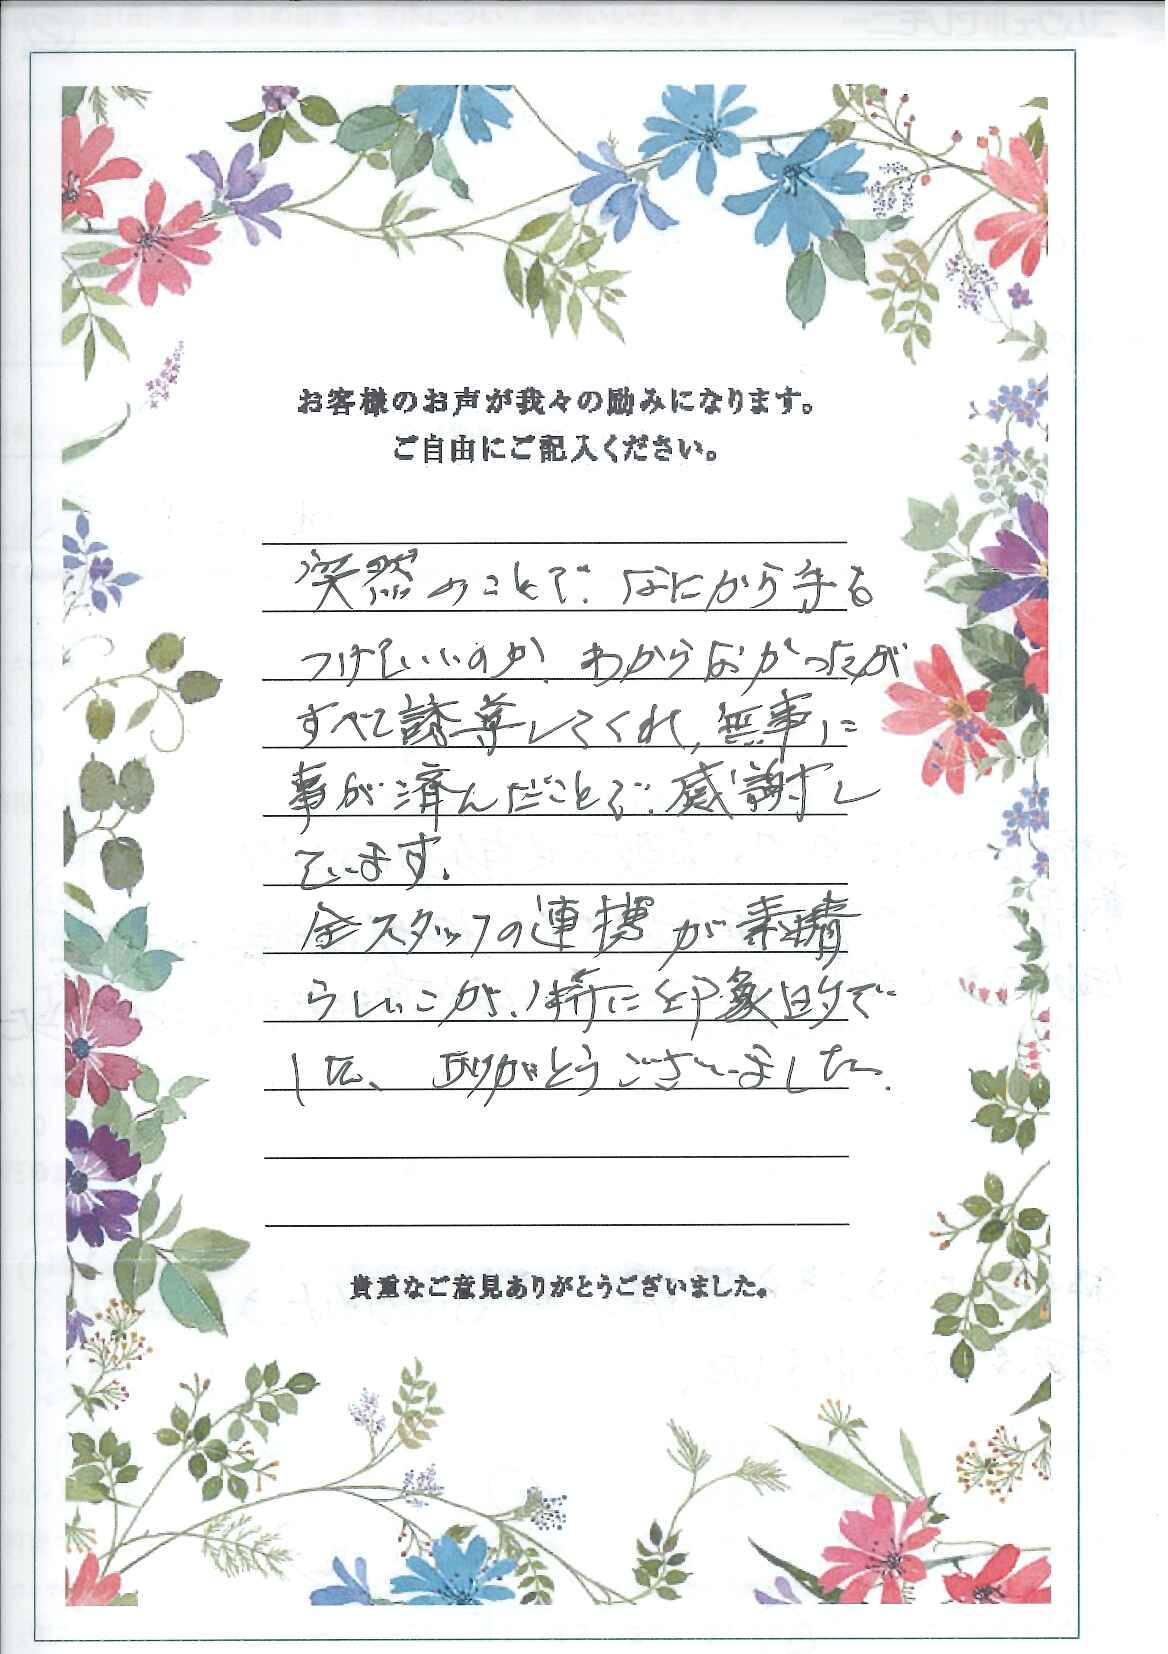 お客様のお声が我々の励みになります。
ご自由にご記入ください。
突然のことで、なにから手を
つけていいのか、わからなかったが
すべて誘導してくれ、無事に
事が済んだことで、感謝し
ています。
全スタッフの連携が素晴
らしいこが、特に印象的で
した、ありがとうございました。
貴重なご意見ありがとうございました。